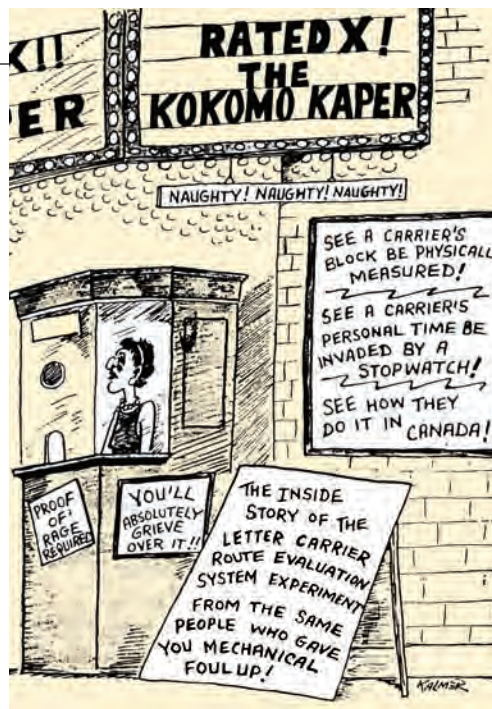 X!!
ER
RATED X!
THE
KOKOMO KAPER
NAUGHTY! NAUGHTY! NAUGHTY!
SEE A CARRIER'S
BLOCK BE PHYSICALLY
MEASURED!
SEE A CARRIER'S
PERSONAL TIME BE
INVADED BY A
STOPWATCH!
SEE HOW THEY
DO IT IN CANADA!
PROOF
OF:
RAGE
REQUIRED
YOU'LL
ABSOLUTELY
GRIEVE
OVER IT!!
THE INSIDE
STORY OF THE
LETTER CARRIER
ROUTE EVALUATION
SYSTEM EXPERIMENT
FROM THE SAME
PEOPLE WHO GAVE
YOU MECHANICAL
FOUL UP!
KALMER